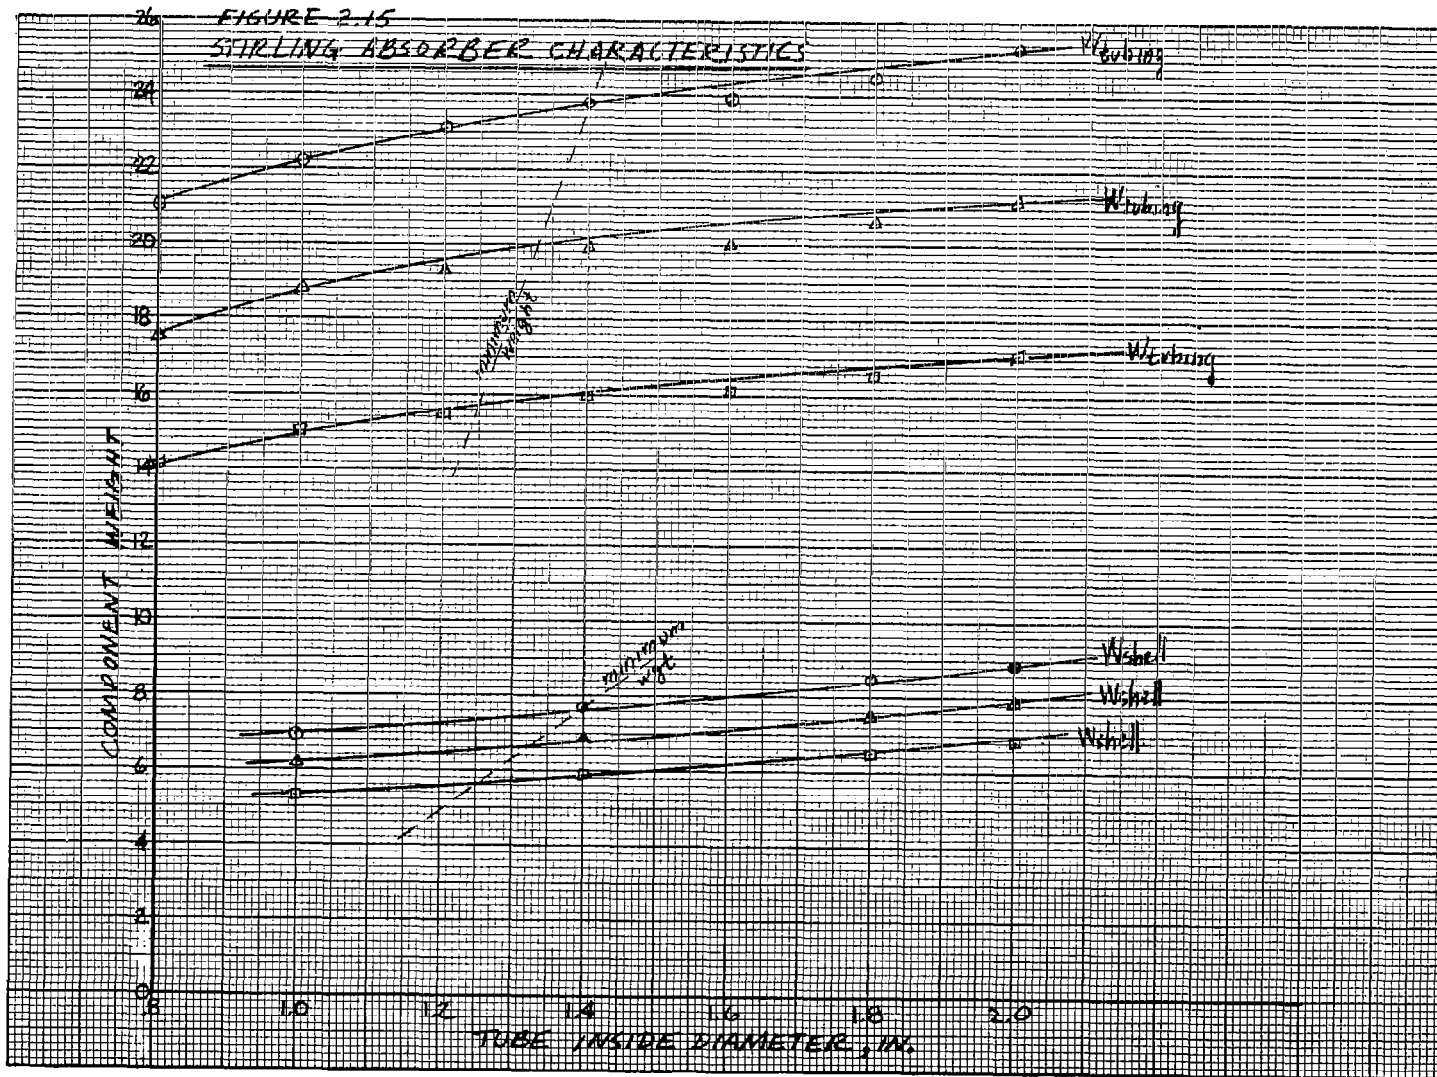 FIGURE 2.15
STIRLING ABSORBER CHARACTERISTICS
26
24
22
20
18
16
14
12
10
8
6
4
2
0
COMPONENT WEIGHT
Wtubing
Wtubing
Wtubing
minimum
weight
minimum
wgt
Wshell
Wshell
Wshell
.8 1.0 1.2 1.4 1.6 1.8 2.0
TUBE INSIDE DIAMETER, IN.